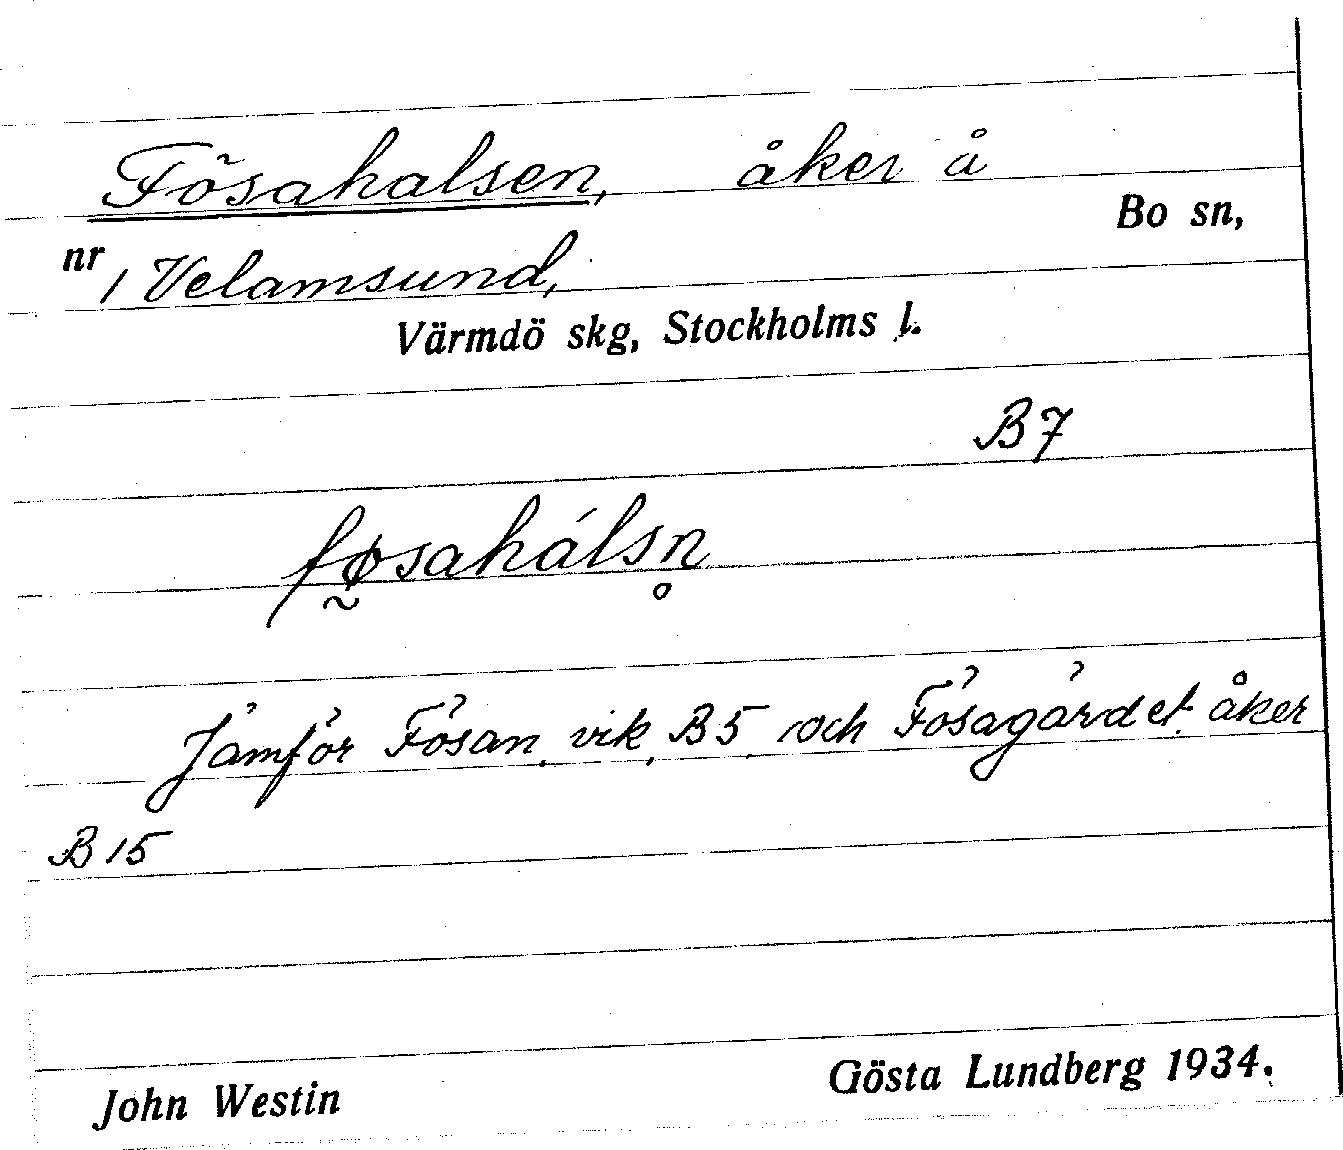 Fösahalsen, åker å
Bo sn,
nr 1 Velamsund,
Värmdö skg, Stockholms l.
B7
fø̰sahálsn̥
Jämför Fösan, vik, B5, och Fösagärdet, åker
B 15
John Westin Gösta Lundberg 1934.